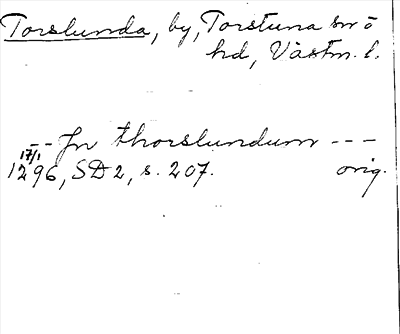 Torslunda, by, Torstuna sn o
hd, Västm. l.
- - Jn thorslundum - - -
17/1
1296, SD 2, s. 207. orig.